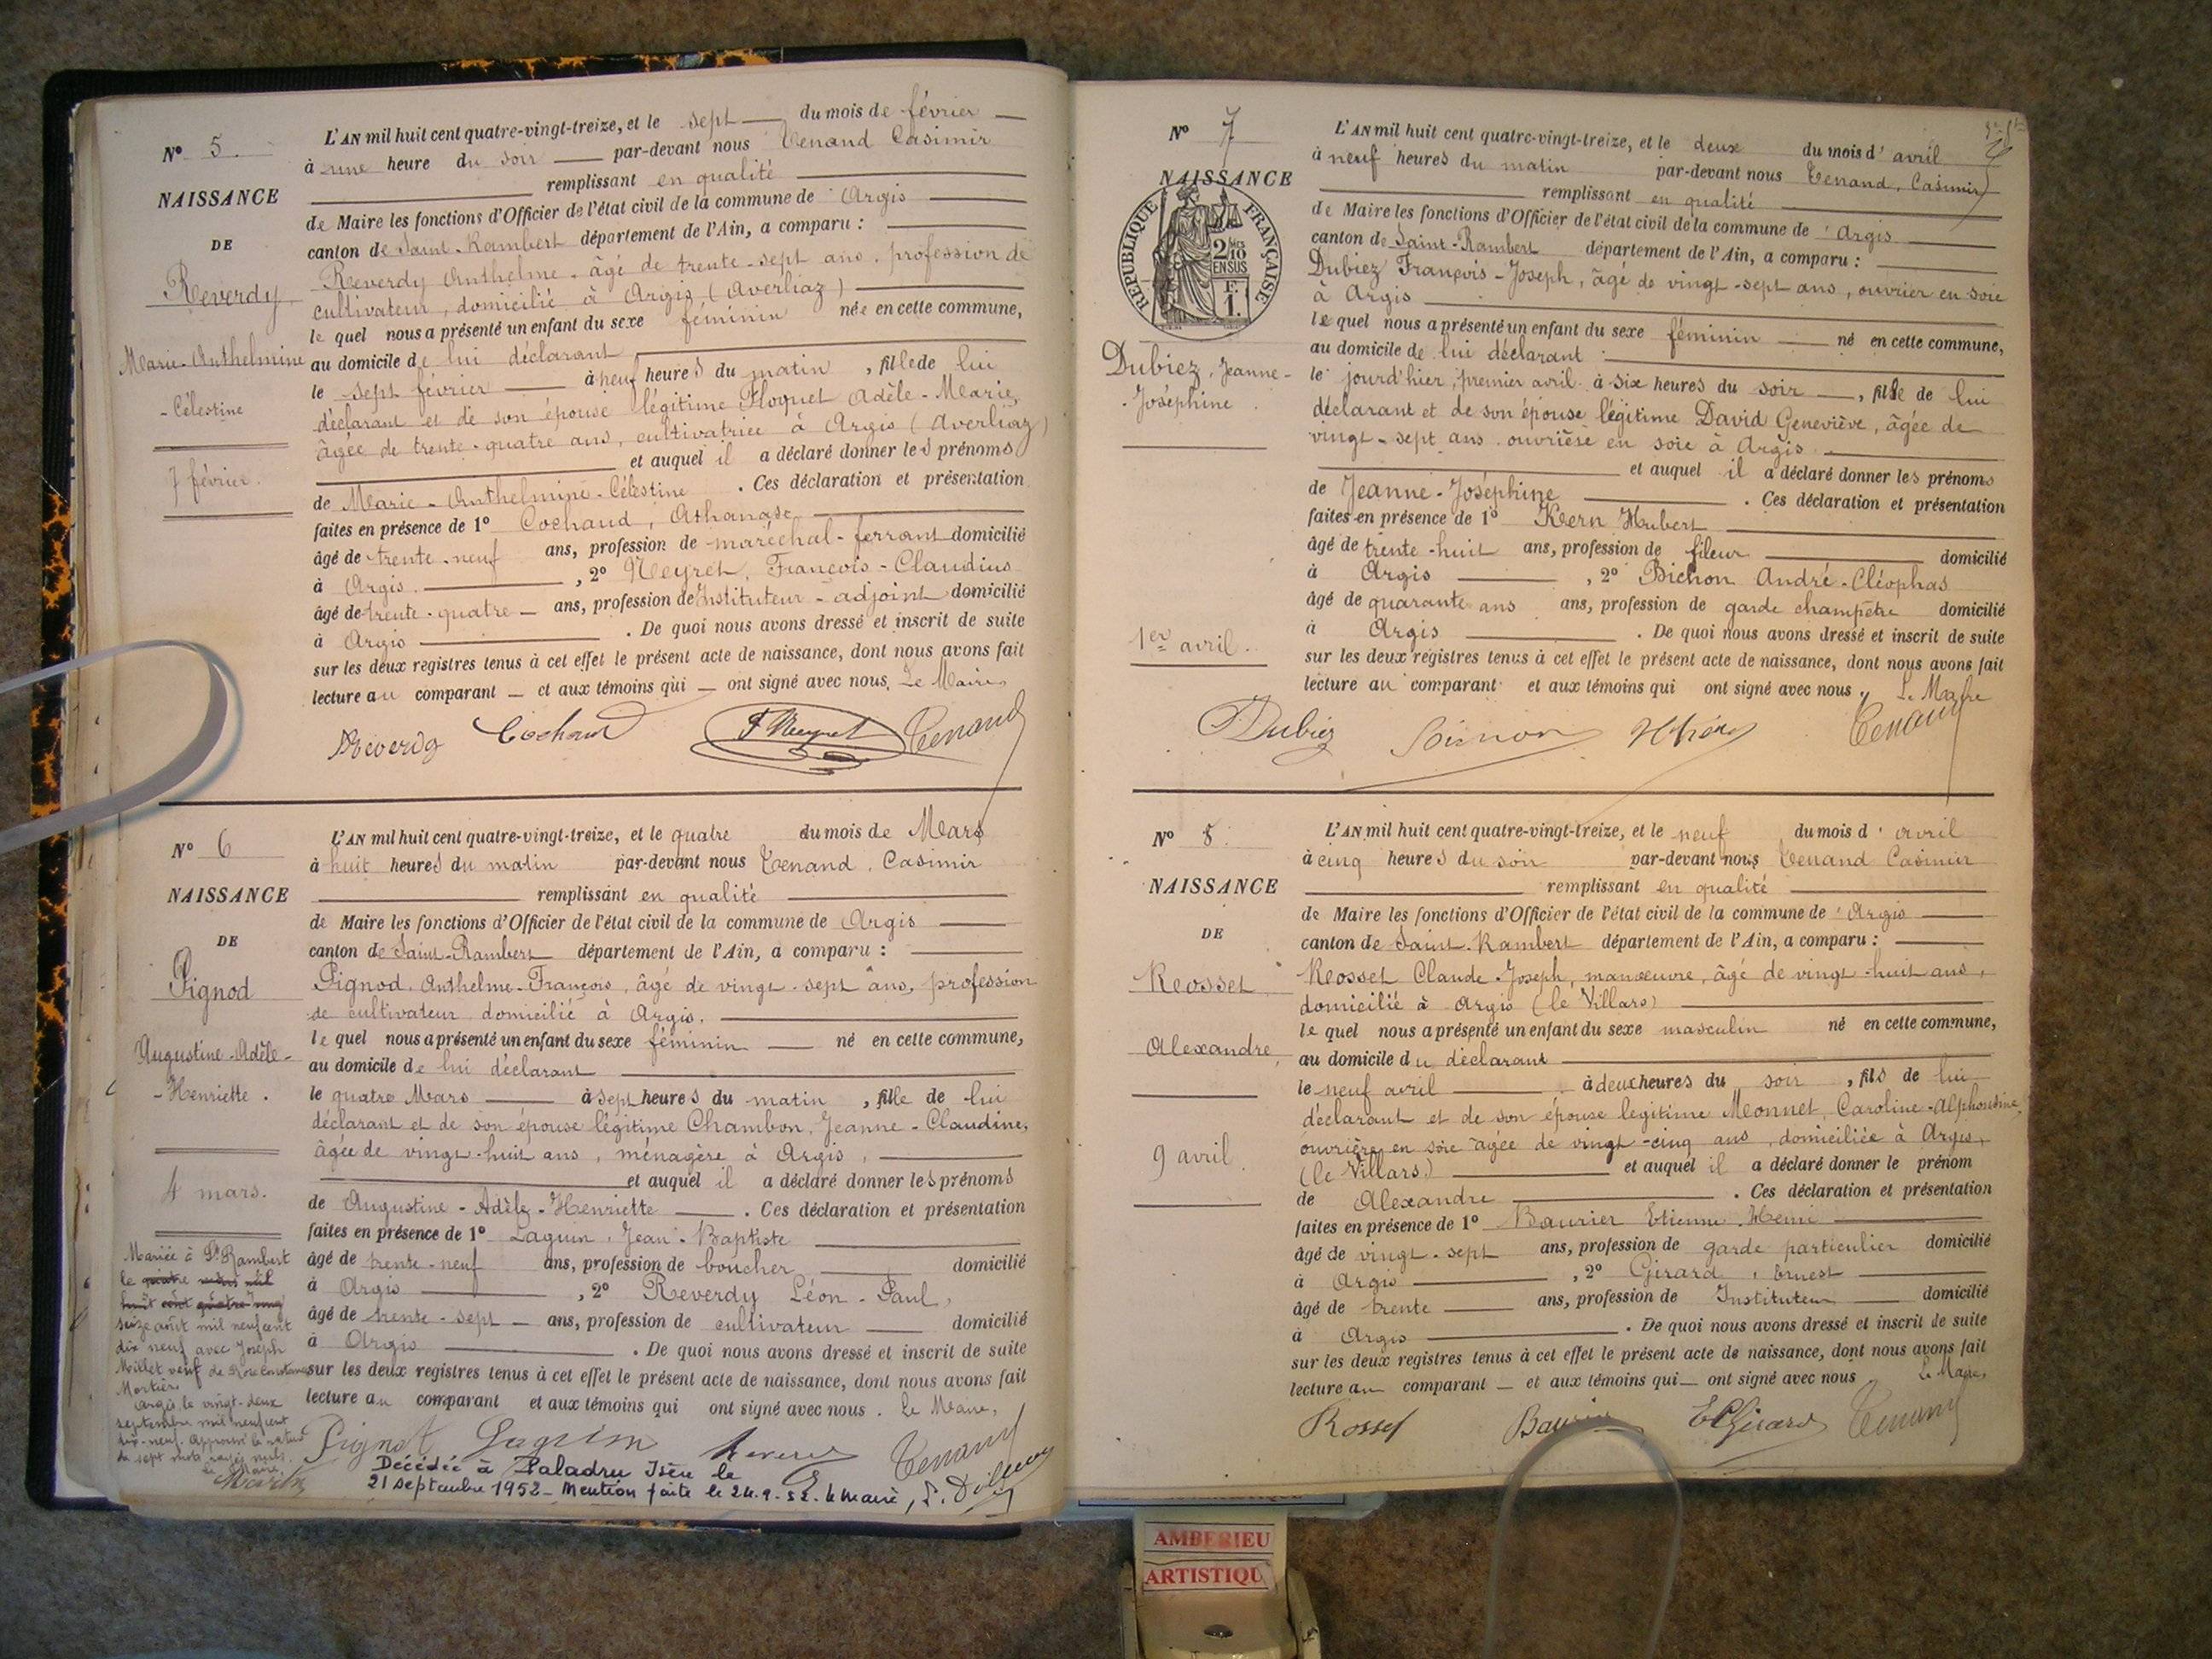 N° 5.
NAISSANCE
DE
Reverdy
Marie-Anthelmine
-Célestine
7 février.
L'AN mil huit cent quatre-vingt-treize, et le sept du mois de février
à une heure du soir par-devant nous Tenand Casimir
remplissant en qualité
de Maire les fonctions d'Officier de l'état civil de la commune de Argis
canton de Saint-Rambert département de l'Ain, a comparu :
Reverdy Anthelme, âgé de trente-sept ans, profession de
cultivateur, domicilié à Argis, (Averliaz)
le quel nous a présenté un enfant du sexe féminin née en cette commune,
au domicile de lui déclarant
le sept février à neuf heures du matin, fille de lui
déclarant et de son épouse légitime Floquet Adèle-Marie,
âgée de trente-quatre ans, cultivatrice à Argis (Averliaz)
et auquel il a déclaré donner les prénoms
de Marie-Anthelmine-Célestine. Ces déclaration et présentation
faites en présence de 1° Cochaud, Athanase
âgé de trente-neuf ans, profession de maréchal-ferrant domicilié
à Argis, 2° Neyret, François-Claudius
âgé de trente-quatre ans, profession de Instituteur-adjoint domicilié
à Argis. De quoi nous avons dressé et inscrit de suite
sur les deux registres tenus à cet effet le présent acte de naissance, dont nous avons fait
lecture au comparant et aux témoins qui ont signé avec nous, Le Maire,
Reverdy Cochaud F Neyret Tenand
N° 6
NAISSANCE
DE
Pignod
Augustine-Adèle-
-Henriette.
4 mars.
Mariée à St Rambert
le quatre mars mil
huit cent quatre-vingt
seize août mil neuf cent
dix neuf avec Joseph
Millet veuf de Rose Constance
Mortier
Argis, le vingt-deux
septembre mil neuf cent
dix-neuf. Approuvé la rature
de sept mots rayés nuls.
Le Maire,
L'AN mil huit cent quatre-vingt-treize, et le quatre du mois de Mars
à huit heures du matin par-devant nous Tenand, Casimir
remplissant en qualité
de Maire les fonctions d'Officier de l'état civil de la commune de Argis
canton de Saint-Rambert département de l'Ain, a comparu :
Pignod, Anthelme-François, âgé de vingt-sept ans, profession
de cultivateur domicilié à Argis.
le quel nous a présenté un enfant du sexe féminin né en cette commune,
au domicile de lui déclarant
le quatre Mars à sept heures du matin, fille de lui
déclarant et de son épouse légitime Chambon, Jeanne-Claudine,
âgée de vingt-huit ans, ménagère à Argis,
et auquel il a déclaré donner les prénoms
de Augustine-Adèle-Henriette. Ces déclaration et présentation
faites en présence de 1° Laguin, Jean-Baptiste
âgé de trente-neuf ans, profession de boucher domicilié
à Argis, 2° Reverdy Léon-Paul,
âgé de trente-sept ans, profession de cultivateur domicilié
à Argis. De quoi nous avons dressé et inscrit de suite
sur les deux registres tenus à cet effet le présent acte de naissance, dont nous avons fait
lecture au comparant et aux témoins qui ont signé avec nous. Le Maire,
Pignot Laguin Tenand
Décédée à Paladru Isère le
21 septembre 1952 - Mention faite le 24.9.52. le maire,
N° 7
NAISSANCE
RÉPUBLIQUE FRANÇAISE
2 10
EN SUS
F.
1.
Dubiez, Jeanne-
-Joséphine.
1er avril.
L'AN mil huit cent quatre-vingt-treize, et le deux du mois d'avril
à neuf heures du matin par-devant nous Tenand, Casimir
remplissant en qualité
de Maire les fonctions d'Officier de l'état civil de la commune de Argis
canton de Saint-Rambert département de l'Ain, a comparu :
Dubiez François-Joseph, âgé de vingt-sept ans, ouvrier en soie
à Argis
le quel nous a présenté un enfant du sexe féminin né en cette commune,
au domicile de lui déclarant
le jourd'hier, premier avril à six heures du soir, fille de lui
déclarant et de son épouse légitime David Geneviève, âgée de
vingt-sept ans, ouvrière en soie à Argis.
et auquel il a déclaré donner les prénoms
de Jeanne-Joséphine. Ces déclaration et présentation
faites en présence de 1° Kern Hubert
âgé de trente-huit ans, profession de fileur domicilié
à Argis, 2° Bichon André-Cléophas
âgé de quarante ans ans, profession de garde champêtre domicilié
à Argis. De quoi nous avons dressé et inscrit de suite
sur les deux registres tenus à cet effet le présent acte de naissance, dont nous avons fait
lecture au comparant et aux témoins qui ont signé avec nous, Le Maire
Dubiez Tenand
N° 8.
NAISSANCE
DE
Rosset
Alexandre,
9 avril.
L'AN mil huit cent quatre-vingt-treize, et le neuf du mois d'avril
à cinq heures du soir par-devant nous Tenand Casimir
remplissant en qualité
de Maire les fonctions d'Officier de l'état civil de la commune de Argis
canton de Saint-Rambert département de l'Ain, a comparu :
Rosset Claude-Joseph, manœuvre, âgé de vingt-huit ans,
domicilié à Argis (le Villars)
le quel nous a présenté un enfant du sexe masculin né en cette commune,
au domicile du déclarant
le neuf avril à deux heures du soir, fils de lui
déclarant et de son épouse légitime Monnet, Caroline-Alphonsine,
ouvrière en soie âgée de vingt-cinq ans, domiciliée à Argis,
(le Villars.) et auquel il a déclaré donner le prénom
de Alexandre. Ces déclaration et présentation
faites en présence de 1° Baurier Etienne-Henri
âgé de vingt-sept ans, profession de garde particulier domicilié
à Argis, 2° Girard, Ernest
âgé de trente ans, profession de Instituteur domicilié
à Argis. De quoi nous avons dressé et inscrit de suite
sur les deux registres tenus à cet effet le présent acte de naissance, dont nous avons fait
lecture au comparant et aux témoins qui ont signé avec nous Le Maire,
Rosset Baurier Girard Tenand
AMBERIEU
ARTISTIQUE